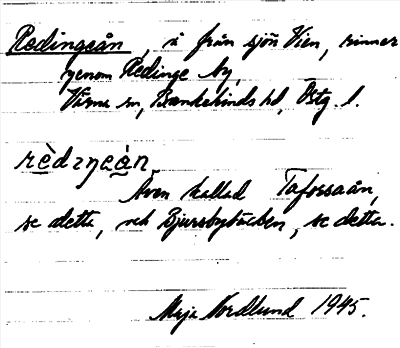 Redingeån, å från sjön Vien, rinner
genom Redinge by,
Värna sn, Bankekinds hd, Östg. l.
rèdɩŋeàn.
Även kallad Taforsaån,
se detta, och Bjursbybäcken, se detta.
Maja Nordlund 1945.